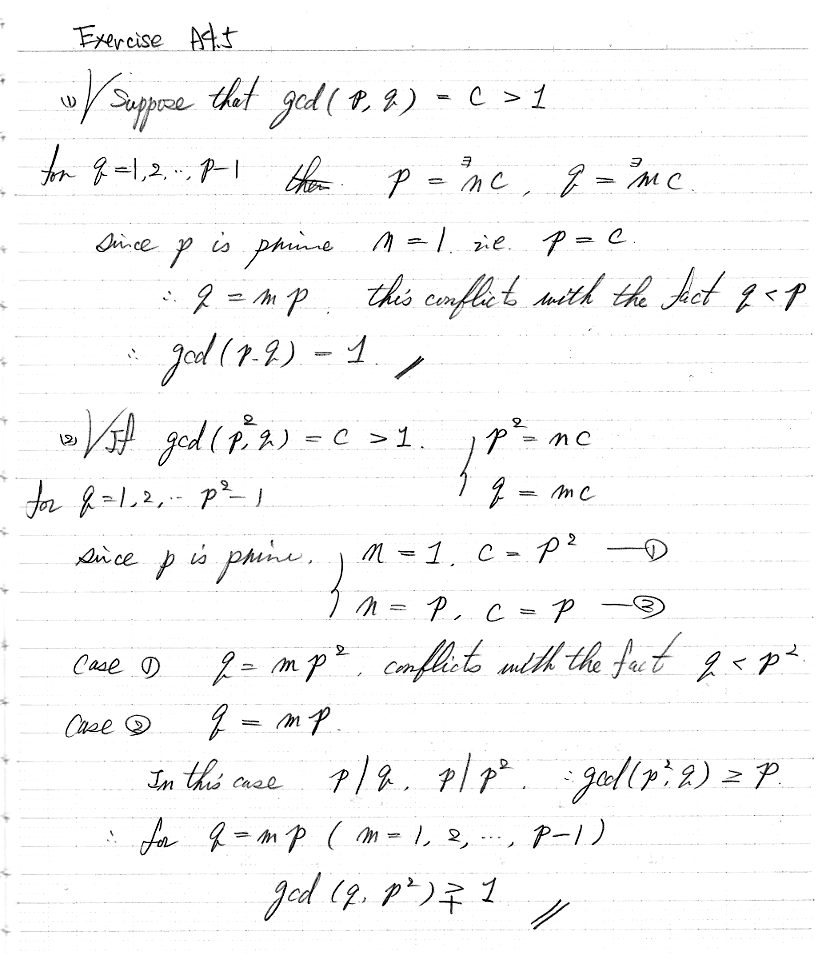 Exercise A4.5
(1) Suppose that gcd(p, q) = c > 1
for q = 1, 2, .., p-1 then p = ∃nc, q = ∃mc.
since p is prime n = 1. i.e. p = c.
∴ q = mp. this conflicts with the fact q < p
∴ gcd(p.q) = 1. //
(2) If gcd(p², q) = c > 1. { p² = nc
for q = 1, 2, .. p²-1 q = mc
since p is prime. { n = 1. c = p² — ①
n = p, c = p — ②
Case ① q = mp². conflicts with the fact q < p².
Case ② q = mp.
In this case p|q. p|p². ∴ gcd(p², q) ≥ p.
∴ for q = mp (m = 1, 2, ..., p-1)
gcd(q, p²) ≩ 1 //